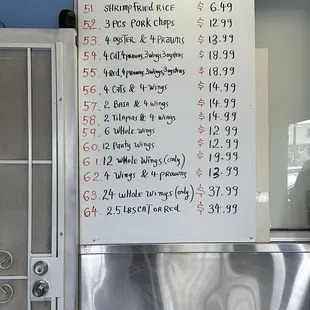 51. SHRIMP FRIED RICE $ 6.49
52. 3 PCS PORK CHOPS $ 12.99
53. 4 OYSTER & 4 PRAWNS $ 13.99
54. 4 CAT, 4 PRAWNS, 3 WINGS, 3 OYSTERS $ 18.99
55. 4 RED, 4 PRAWNS, 3 WINGS, 3 OYSTERS $ 18.99
56. 4 CATS & 4 WINGS $ 14.99
57. 2 BASA & 4 WINGS $ 14.99
58. 2 TILAPIAS & 4 WINGS $ 14.99
59. 6 WHOLE WINGS $ 12.99
60. 12 PARTY WINGS $ 12.99
61. 12 WHOLE WINGS (only) $ 19.99
62. 4 WINGS & 4 PRAWNS $ 13.99
63. 24 WHOLE WINGS (only) $ 37.99
64. 2.5 LBS CAT OR RED $ 34.99